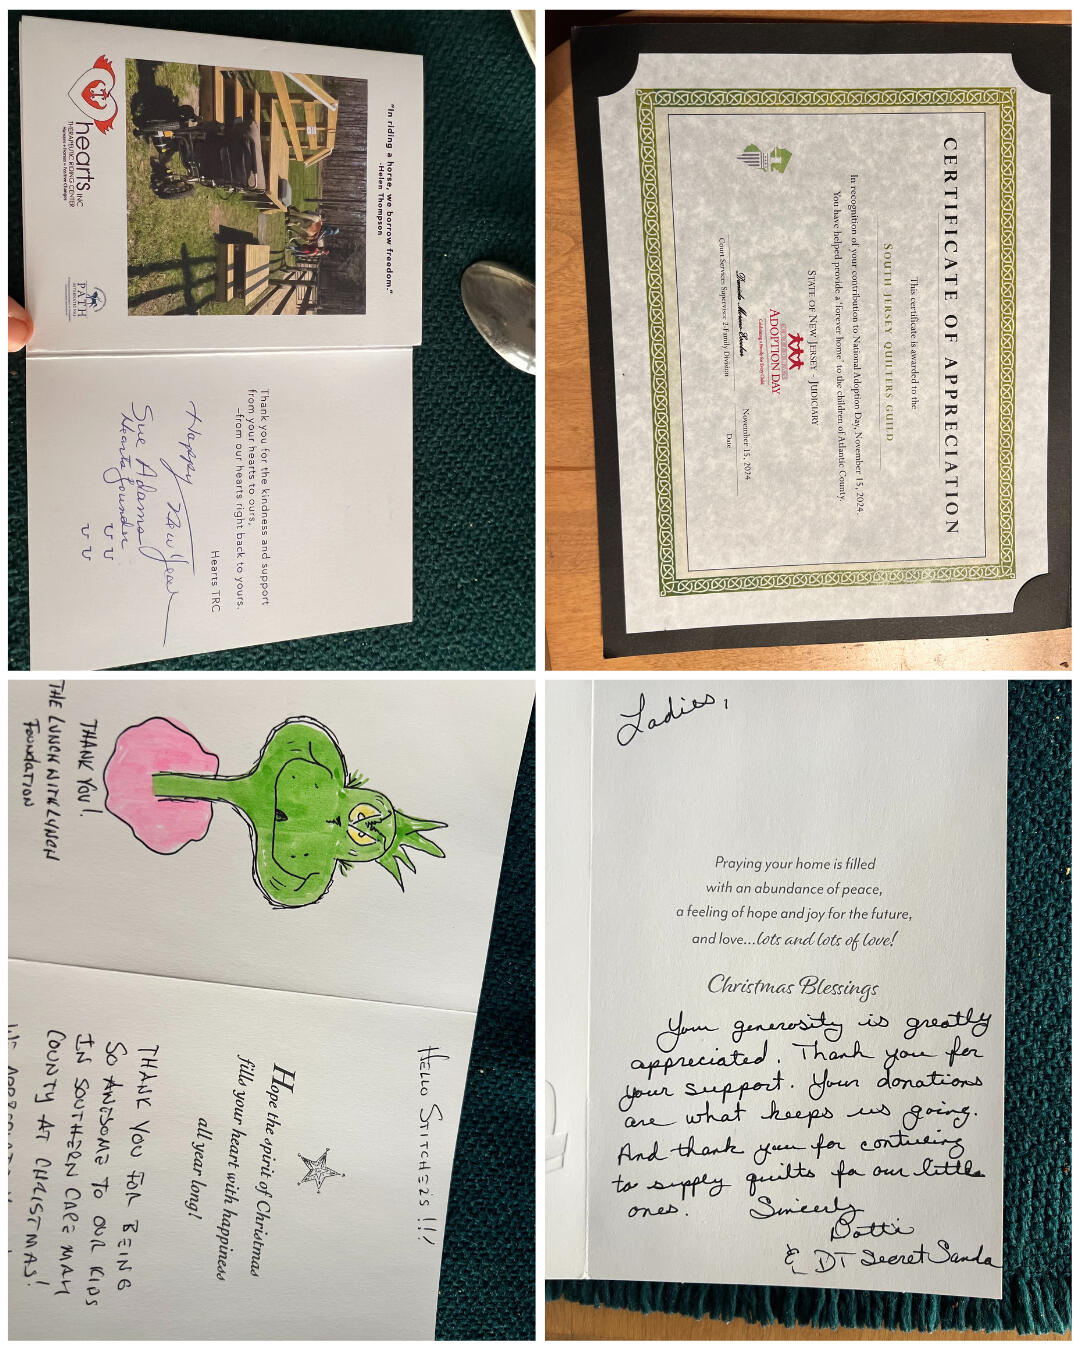 "In riding a horse, we borrow freedom."
-Helen Thompson
hearts INC
THERAPEUTIC RIDING CENTER
Humans • Horses • Positive Changes
PATH
INTERNATIONAL
Thank you for the kindness and support
from your hearts to ours,
–from our hearts right back to yours.
Hearts TRC
Happy New Year
Sue Adams
Hearts founder
CERTIFICATE OF APPRECIATION
This certificate is awarded to the
SOUTH JERSEY QUILTERS GUILD
In recognition of your contribution to National Adoption Day, November 15, 2024.
You have helped provide a 'forever home' to the children of Atlantic County.
STATE OF NEW JERSEY - JUDICIARY
ADOPTION DAY
Celebrating a Family for Every Child
November 15, 2024
Court Services Supervisor 2 Family Division
Date
THANK YOU!
THE LUNCH WITH LYNCH
FOUNDATION
HELLO STITCHERS!!!
Hope the spirit of Christmas
fills your heart with happiness
all year long!
THANK YOU FOR BEING
SO AWESOME TO OUR KIDS
IN SOUTHERN CAPE MAY
COUNTY AT CHRISTMAS!
Ladies,
Praying your home is filled
with an abundance of peace,
a feeling of hope and joy for the future,
and love...lots and lots of love!
Christmas Blessings
Your generosity is greatly
appreciated. Thank you for
your support. Your donations
are what keeps us going.
And thank you for contuing
to supply quilts for our little
ones. Sincerly
Dotti
& DT Secret Santa